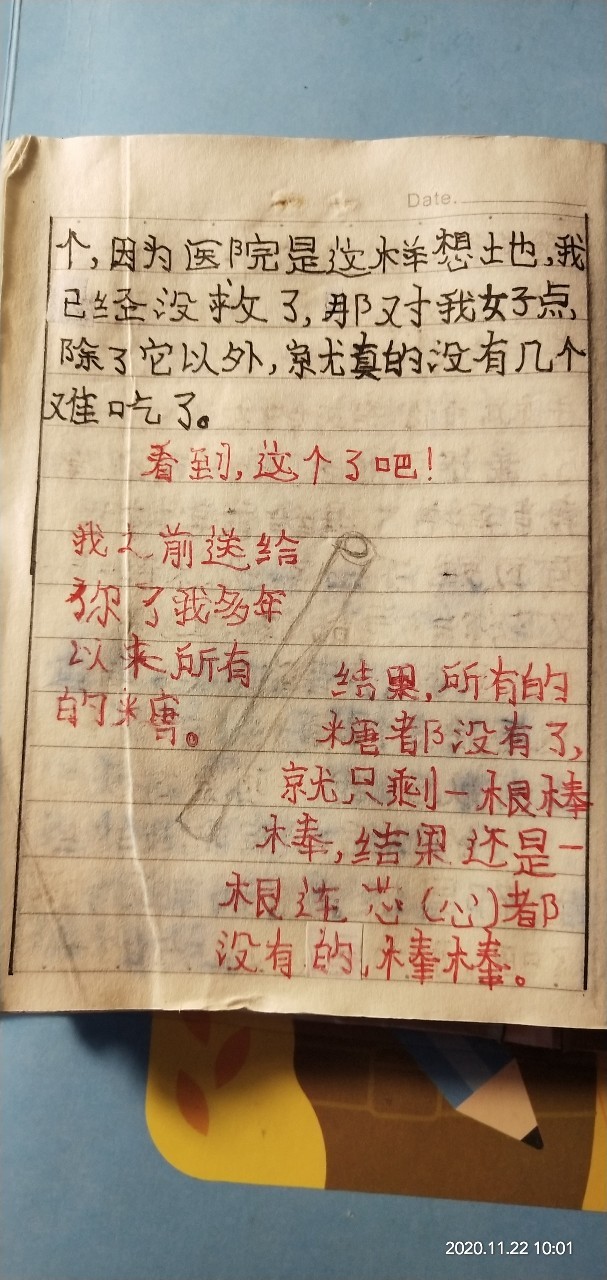 Date.
个,因为医院是这样想土也,我
已经没救了,那对我好点,
除了它以外,就真的没有几个
难吃了。
看到,这个了吧!
我之前送给
你了我多年
以来所有
的糖。
结果,所有的
糖都没有了,
就只剩一根棒
棒,结果还是一
根连芯(心)都
没有的,棒棒。
2020.11.22 10:01